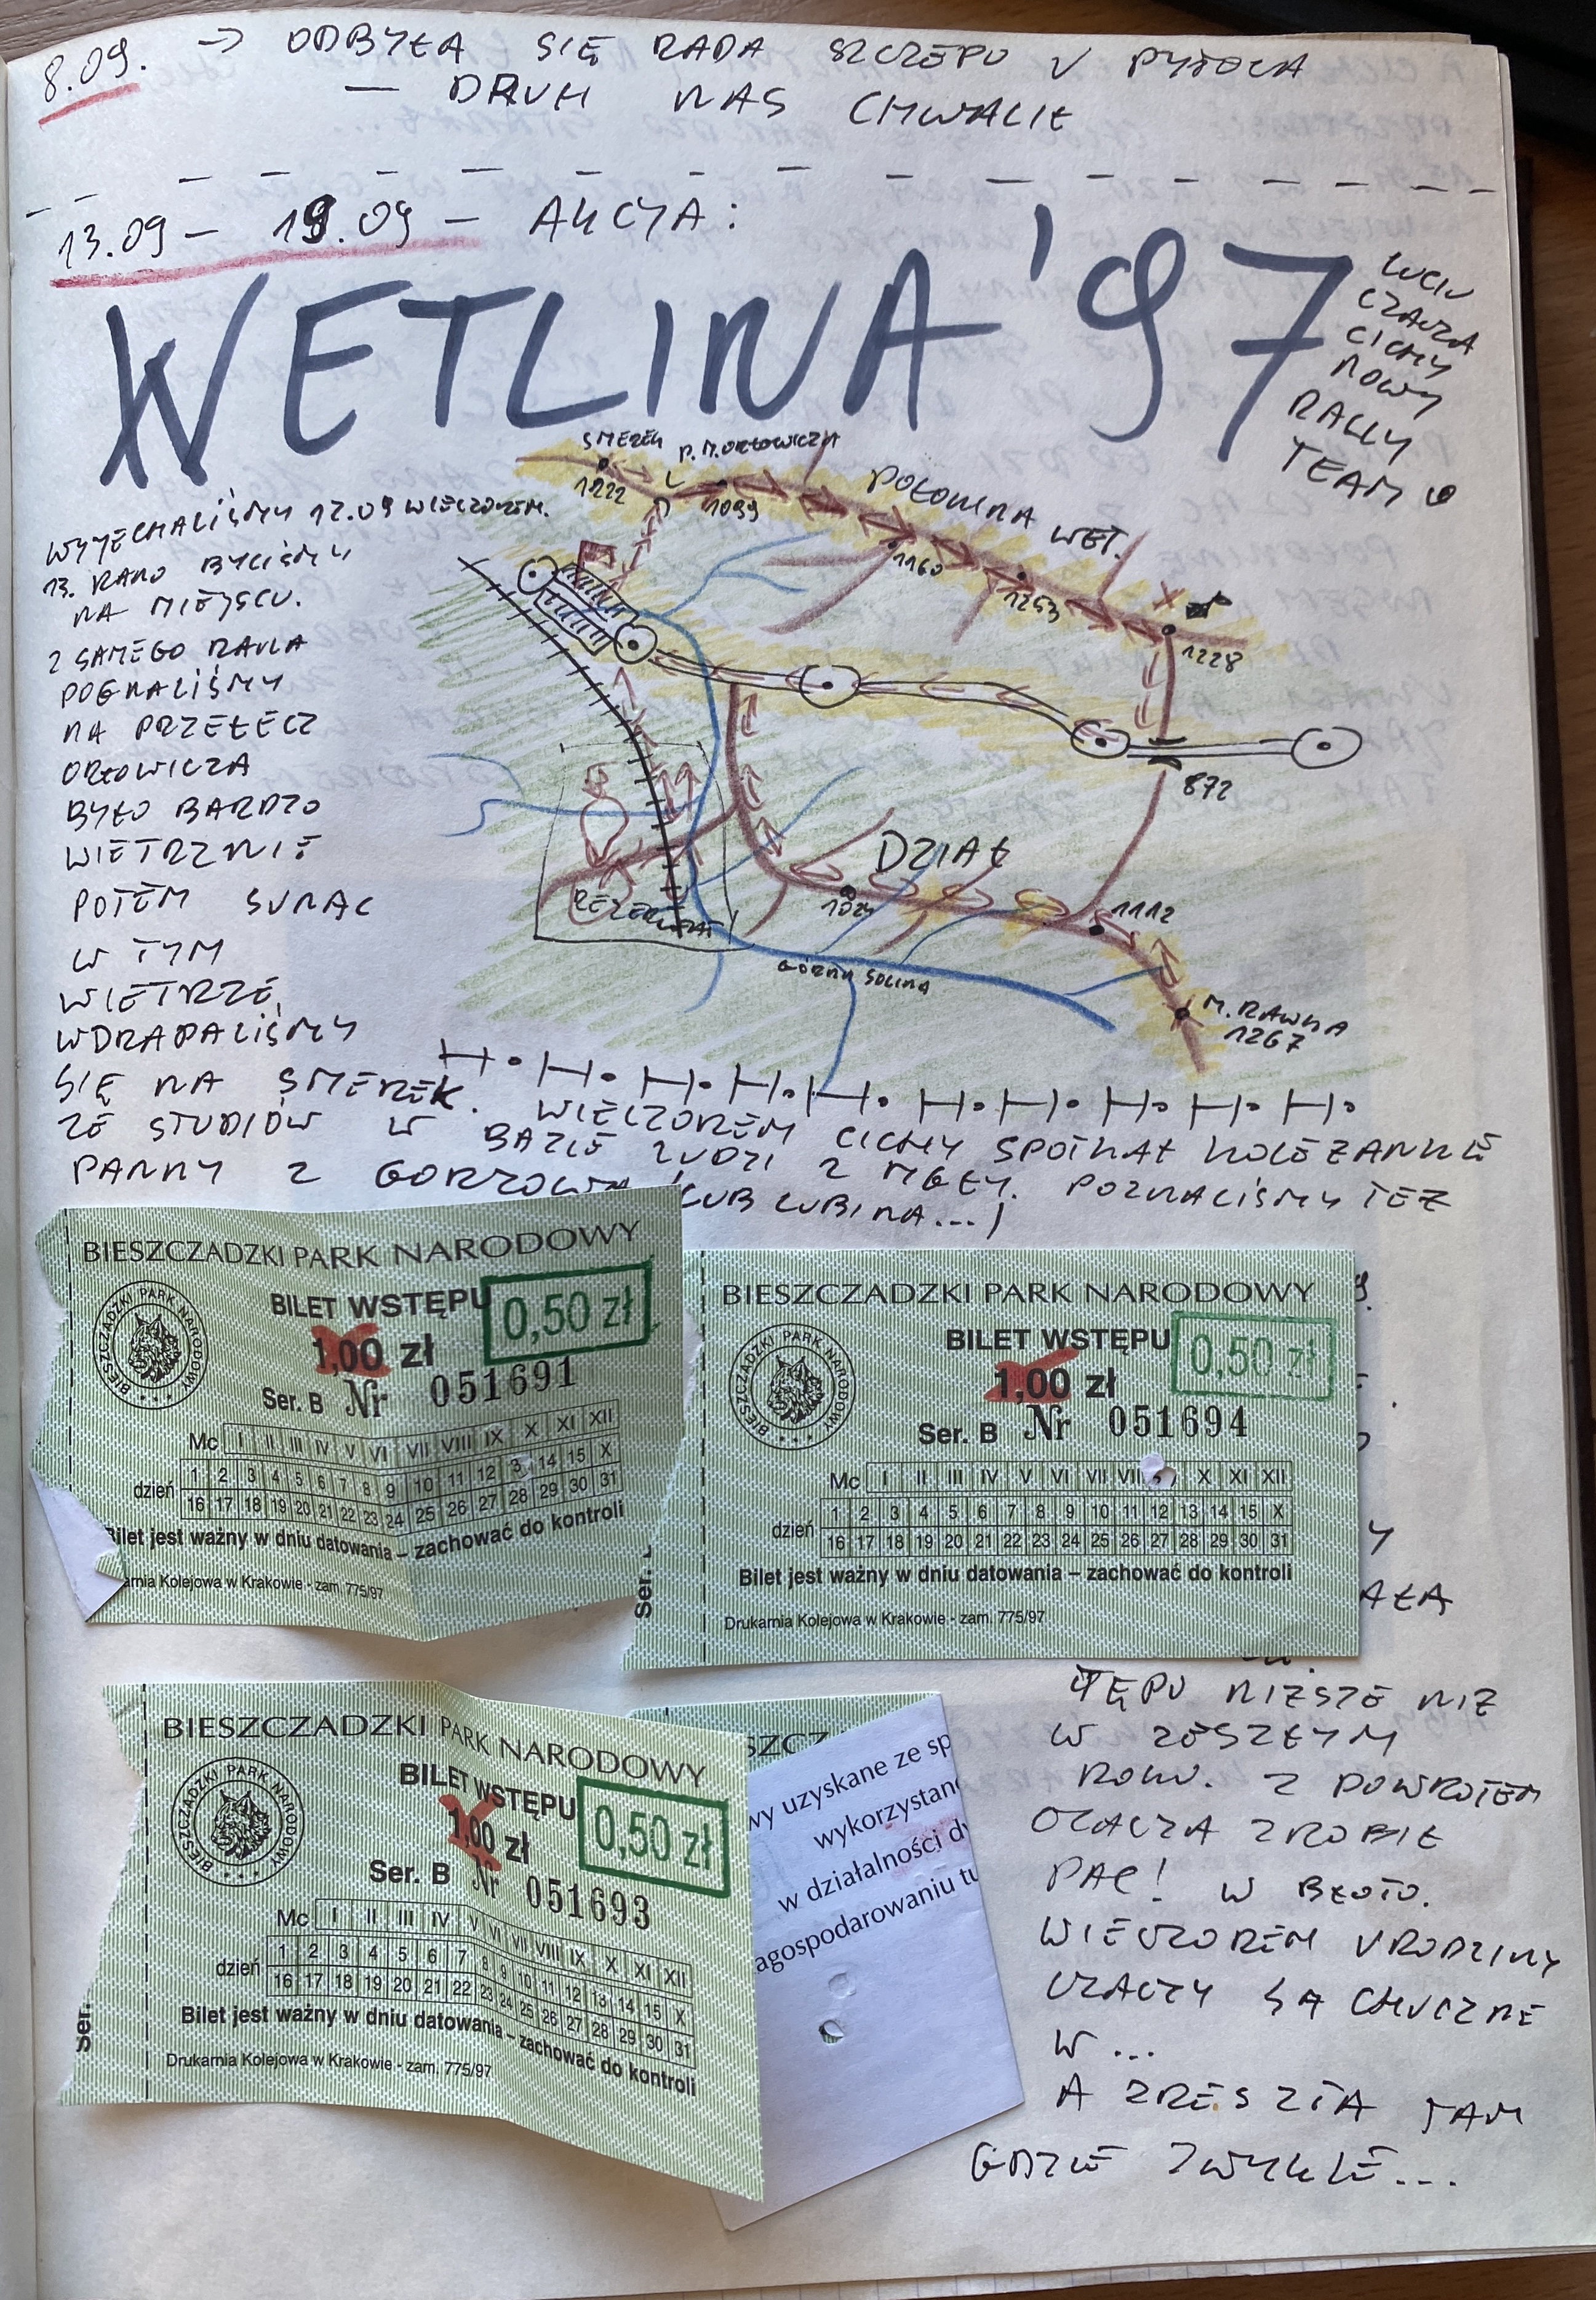 8.09. → ODBYŁA SIĘ RADA SZCZEPU
— DRUH NAS CHWALIŁ
13.09 – 19.09 – AKCJA:
WETLINA '97
CICHY
NOWY
RALLY
TEAM
SMEREK
1222
P. M. ORŁOWICZA
1099
POŁONINA WET.
1160
1253
1228
872
DZIAŁ
1112
GÓRNA SOLINA
M. RAWKA
1267
WYJECHALIŚMY 12.09 WIECZOREM.
13. RANO BYLIŚMY
NA MIEJSCU.
Z SAMEGO RANA
POGNALIŚMY
NA PRZEŁĘCZ
ORŁOWICZA
BYŁO BARDZO
WIETRZNIE
POTEM SUNĄC
W TYM
WIETRZE
WDRAPALIŚMY
SIĘ NA SMEREK. WIECZOREM CICHY SPOTKAŁ KOLEŻANKĘ
ZE STUDIÓW W BAZIE LUDZI Z MGŁY. POZNALIŚMY TEŻ
PANNY Z GORZOWA (LUB LUBINA...)
BIESZCZADZKI PARK NARODOWY
BIESZCZADZKI PARK NARODOWY
BILET WSTĘPU
0,50 zł
1,00 zł
Ser. B Nr 051691
Mc I II III IV V VI VII VIII IX X XI XII
dzień
1 2 3 4 5 6 7 8 9 10 11 12 14 15 X
16 17 18 19 20 21 22 23 24 25 26 27 28 29 30 31
Bilet jest ważny w dniu datowania – zachować do kontroli
Kolejowa w Krakowie - zam. 775/97
BIESZCZADZKI PARK NARODOWY
BIESZCZADZKI PARK NARODOWY
BILET WSTĘPU
0,50 zł
1,00 zł
Ser. B Nr 051694
Mc I II III IV V VI VII VIII X XI XII
dzień
1 2 3 4 5 6 7 8 9 10 11 12 13 14 15 X
16 17 18 19 20 21 22 23 24 25 26 27 28 29 30 31
Bilet jest ważny w dniu datowania – zachować do kontroli
Drukarnia Kolejowa w Krakowie - zam. 775/97
Ser.
BIESZCZADZKI PARK NARODOWY
BIESZCZADZKI PARK NARODOWY
BILET WSTĘPU
0,50 zł
1,00 zł
Ser. B Nr 051693
Mc I II III IV V VI VII VIII IX X XI XII
dzień
1 2 3 4 5 6 7 8 9 10 11 12 13 14 15 X
16 17 18 19 20 21 22 23 24 25 26 27 28 29 30 31
Bilet jest ważny w dniu datowania – zachować do kontroli
Drukarnia Kolejowa w Krakowie - zam. 775/97
Ser.
uzyskane ze
w działalności
NIŻSZE NIŻ
W ZESZŁYM
ROKU. Z POWROTEM
ZROBIŁ
PAC! W BŁOTO.
WIECZOREM URODZINY
CZACZY SĄ HUCZNE
W...
A ZRESZTĄ TAM
GDZIE ZWYKLE...